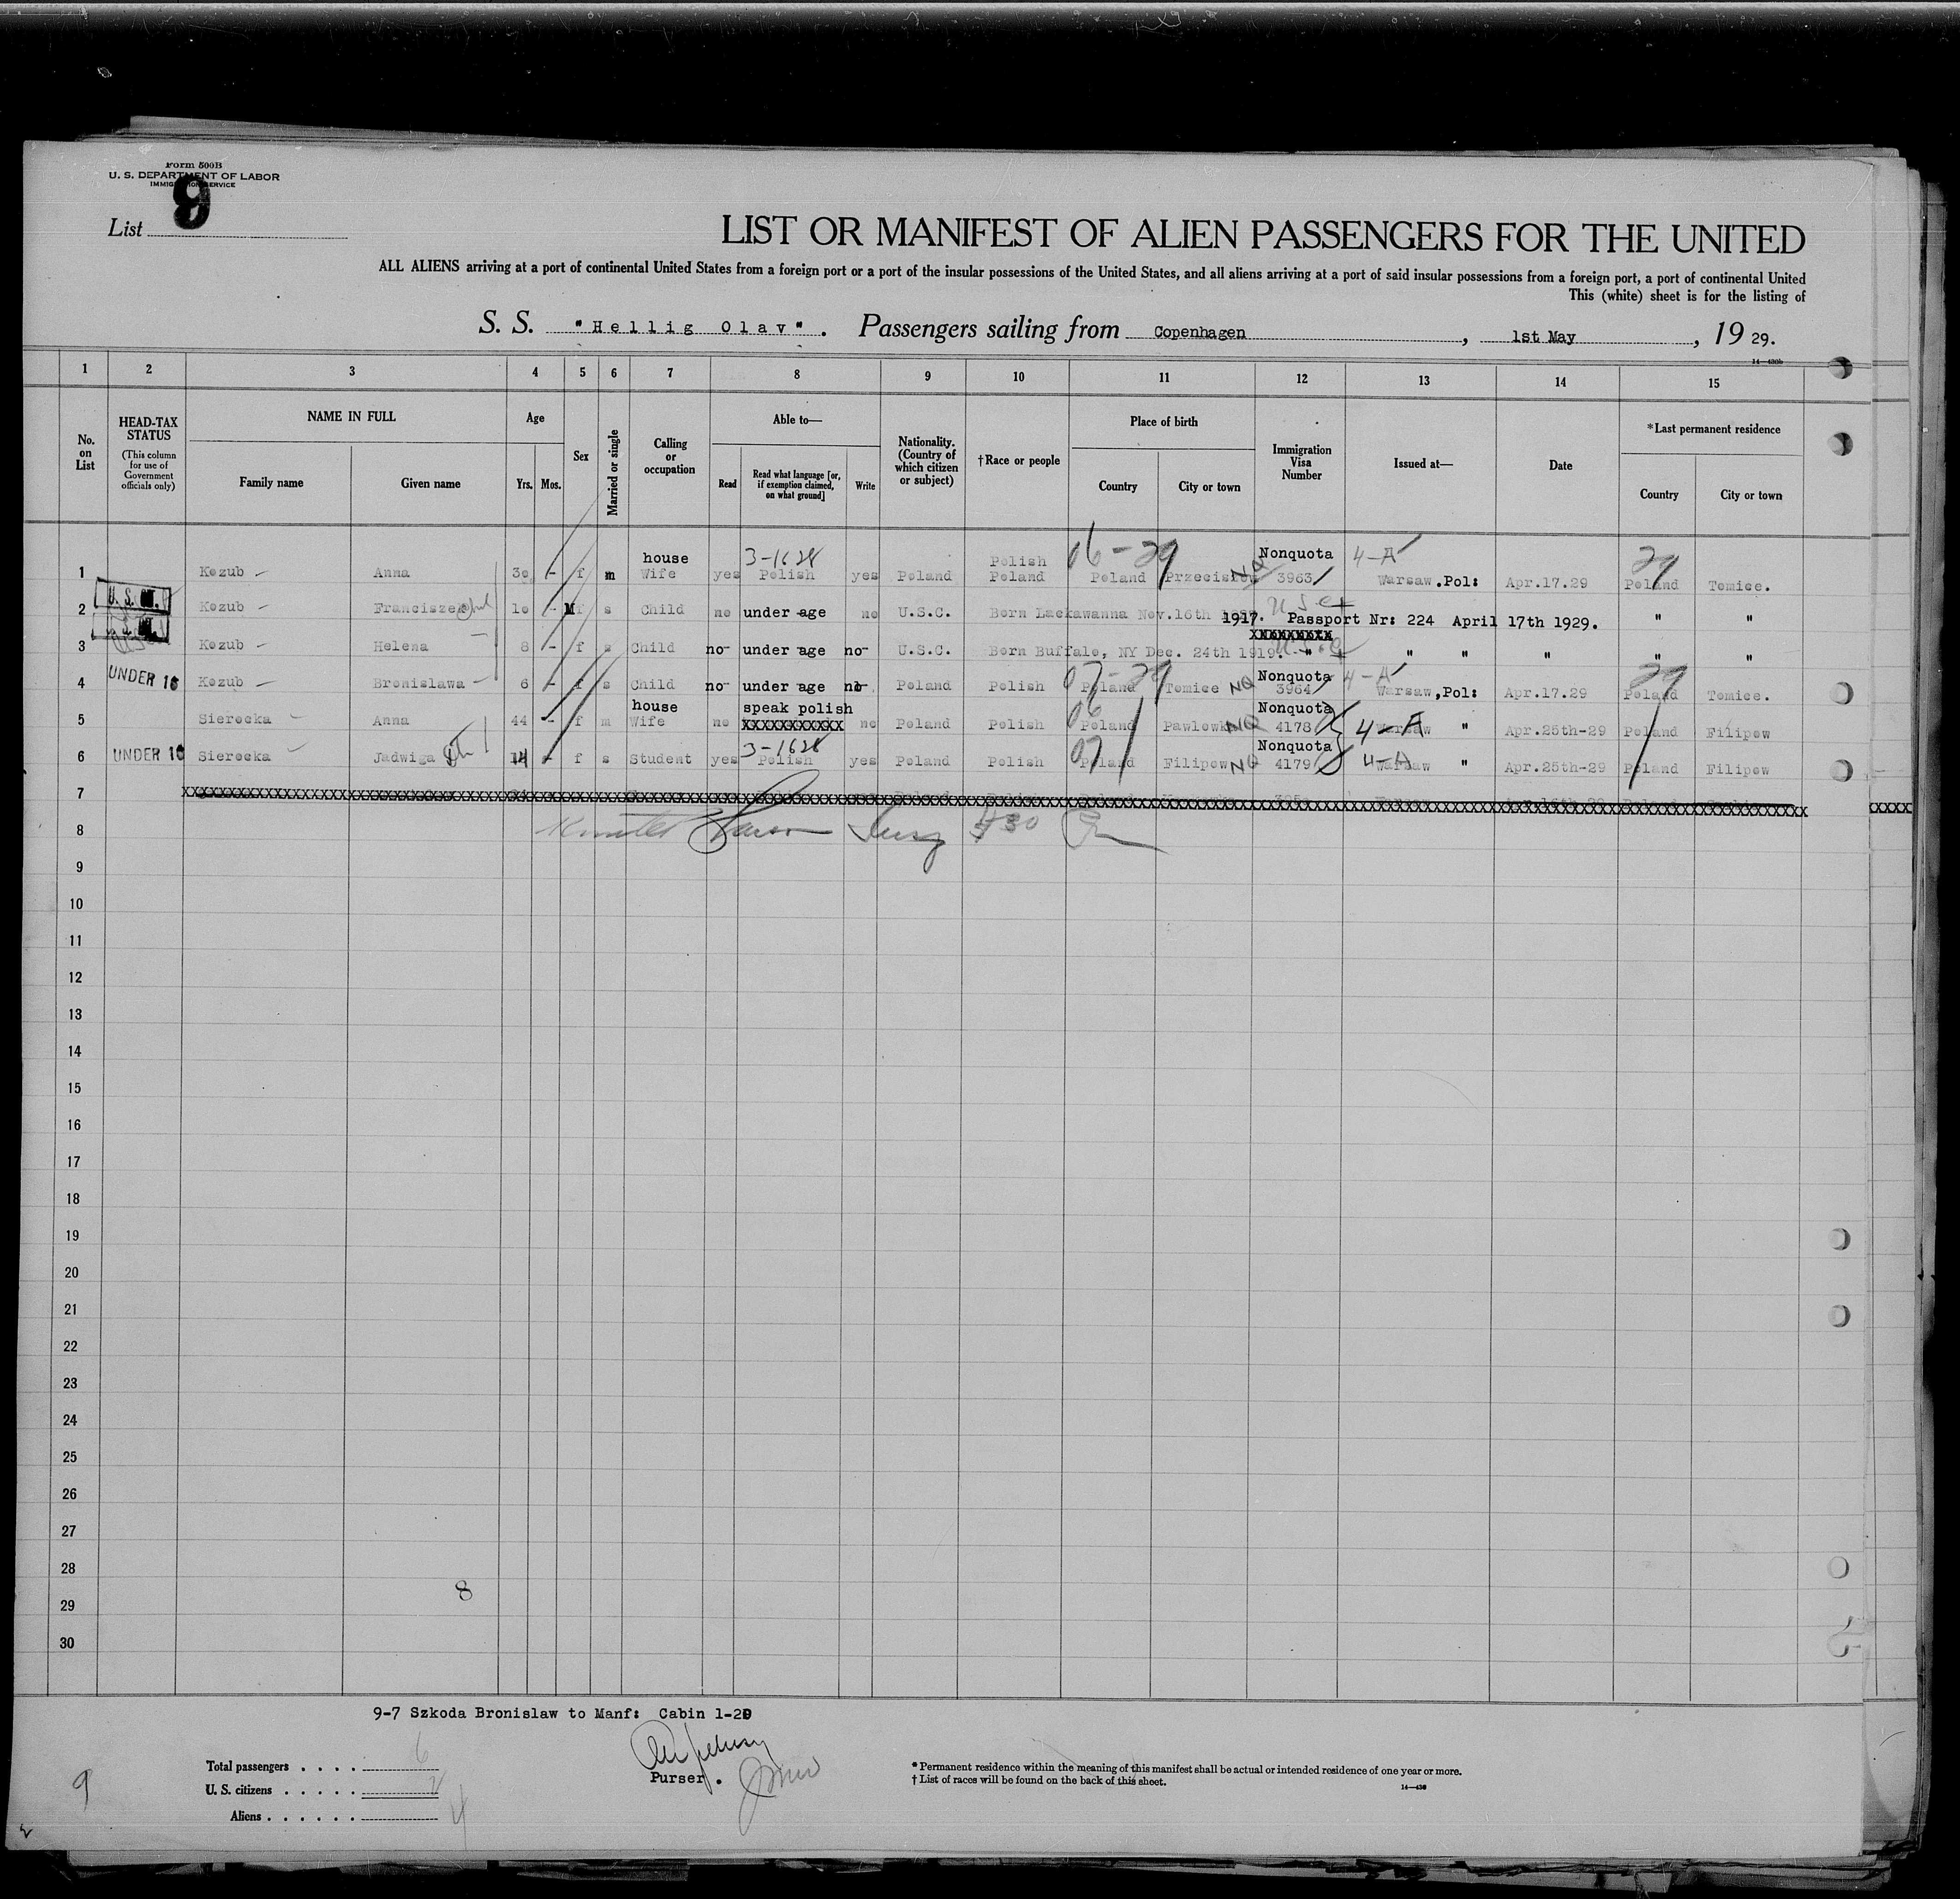 Form 500B
U. S. DEPARTMENT OF LABOR
IMMIGRATION SERVICE
List 9
LIST OR MANIFEST OF ALIEN PASSENGERS FOR THE UNITED
ALL ALIENS arriving at a port of continental United States from a foreign port or a port of the insular possessions of the United States, and all aliens arriving at a port of said insular possessions from a foreign port, a port of continental United
This (white) sheet is for the listing of
S. S. "Hellig Olav". Passengers sailing from Copenhagen, 1st May, 19 29.
14—430b
1 2 3 4 5 6 7 8 9 10 11 12 13 14 15
No. on List
HEAD-TAX STATUS (This column for use of Government officials only)
NAME IN FULL
Family name Given name
Age
Yrs. Mos.
Sex
Married or single
Calling or occupation
Able to—
Read Read what language [or, if exemption claimed, on what ground] Write
Nationality. (Country of which citizen or subject)
†Race or people
Place of birth
Country City or town
Immigration Visa Number
Issued at—
Date
*Last permanent residence
Country City or town
house 3-1628 Polish 06-29 Nonquota 4-A 29
1 Kozub Anna 30 - f m Wife yes Polish yes Poland Poland Poland NQ 3963 Warsaw.Pol: Apr.17.29 Poland Tomice.
2 Kozub 10 - M s Child no under age no U.S.C. Born Lackawanna Nov.16th 1917. Passport Nr: 224 April 17th 1929. " "
XXXXXXXXX
3 Kozub Helena 8 - f s Child no under age no U.S.C. Born Buffalo, NY Dec. 24th 1919. " " " " " "
UNDER 16 07-29 Nonquota 4-A 29
4 Kozub Bronislawa 6 - f s Child no under age no Poland Polish Poland Tomice NQ 3964 Warsaw,Pol: Apr.17.29 Poland Tomice.
house speak polish 06 Nonquota
5 Sierocka Anna 44 - f m Wife no XXXXXXXXXXX no Poland Polish Poland NQ 4178 4-A Warsaw " Apr.25th-29 Poland Filipow
3-1628 07 Nonquota
6 UNDER 16 Sierocka Jadwiga 14 - f s Student yes Polish yes Poland Polish Poland Filipow NQ 4179 4-A Warsaw " Apr.25th-29 Poland Filipow
7
8
9
10
11
12
13
14
15
16
17
18
19
20
21
22
23
24
25
26
27
28
8
29
30
9-7 Szkoda Bronislaw to Manf: Cabin 1-20
Purser.
Total passengers . . . . 6
U. S. citizens . . . . . 2
Aliens . . . . . . 4
9
* Permanent residence within the meaning of this manifest shall be actual or intended residence of one year or more.
† List of races will be found on the back of this sheet.
14—430